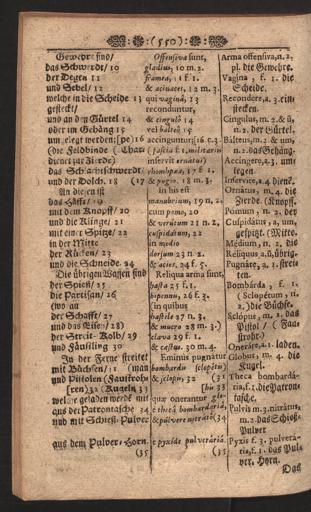 (550)
Gewehre sind/
das Schwerdt/ 10
der Degen 11
und Sebel/ 12
welche in die Scheide 13
gesteckt/
und an den Gürtel 14
oder im Gehäng 15
(die Feldbinde
dienet zur Zierde)
das Schlachtschwerdt
und der Dolch. 18 (17
An denen ist
das Häfft/ 19
mit dem Knopff/ 20
und die Klinge/ 21
mit einer Spitze/ 22
in der Mitte
der Rücken/ 23
und die Schneide. 24
Die übrigen Waffen sind
der Spieß/ 25
die Partisan/ 26
(wo an
der Schafft/ 27
und das Eisen/ 28)
der Streit-Kolb/ 29
und Fäustling 30
In der Ferne streitet
mit Büchsen/ 31 (man
und Pistolen (Faustroh-
ren) 32 (Kugeln 33
welche geladen werden mit
aus der Patrontasche 34
und mit Schieß-Pulver
aus dem Pulver-Horn.
(35
Offensiva sunt,
gladius, 10 m. 2.
framea, 11 f. 1.
& acinaces, 12 m. 3.
qui vaginâ, 13
reconduntur,
& cingulô 14
vel balteô 15
accinguntur 16 c. 3.
(fascia f. 1. militaris
inservit ornatui)
rhomphæa, 17 f. 1.
& pugio. 18 m. 3.
In his est
manubrium, 19 n. 2.
cum pomo, 20
& verutum 21 n. 2.
cuspidatum, 22
in medio
dorsum 23 n. 2.
& acies, 24 f. 5.
Reliqua arma sunt,
hasta 25 f. 1.
bipennis, 26 f. 3.
(in quibus
hastile 27 n. 3.
& mucro 28 m. 3.)
clava 29 f. 1.
& cestus. 30 m. 4.
Eminus pugnatur
bombardis (sclopetis)
& sclopis, 32 (31
(bis 33
quæ onerantur glo-
è thecâ bombardariâ,
& pulvere nitratô 34
è pyxide pulverariâ.
(35
Arma offensiva, n. 2.
pl. die Gewehre.
Vagina, f. 1. die
Scheide.
Recondere, a. 3. ein-
stecken.
Cingulus, m. 2. & û,
n. 2. der Gürtel.
Balteus, m. 2. & um,
n. 2. das Gehäng.
Accingere, a. 3. um-
legen.
Inservire, a. 4. dienen.
Ornatus, m. 4. die
Zierde.
Pomum, n. 2. der Knopff.
Cuspidatus, a, um,
gespitzt.
Medium, n. 2. die Mitte.
Reliquus, a, û, übrig.
Pugnare, a. 1. strei-
ten.
Bombarda, f. 1.
(Sclopetum, n.
2.) die Büchse.
Sclopus, m. 2. das
Pistol/ (Faust-
rohr.)
Onerare, a. 1. laden.
Globus, m. 2. die
Kugel.
Theca bombardá-
ria, f. 1. die Patron-
tasche.
Pulvis m. 3. nitratus,
m. 2. das Schieß-
Pulver
Pyxis f. 3. pulverá-
ria, f. 1. das Pul-
ver-Horn.
Das